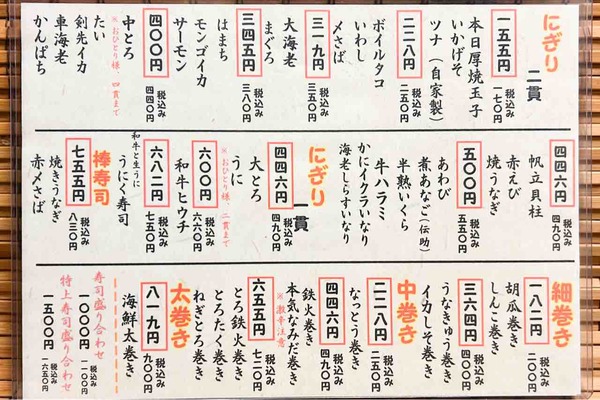 にぎり
二貫
一五五円
税込み
一七〇円
本日厚焼玉子
いかげそ
ツナ(自家製)
二二八円
税込み
二五〇円
ボイルタコ
いわし
〆さば
三一九円
税込み
三五〇円
大海老
まぐろ
三四五円
税込み
三八〇円
はまち
モンゴイカ
サーモン
四〇〇円
税込み
四四〇円
中とろ
※おひとり様、四貫まで
たい
剣先イカ
車海老
かんぱち
四四六円
税込み
四九〇円
帆立貝柱
赤えび
焼うなぎ
五〇〇円
税込み
五五〇円
あわび
煮あなご(伝助)
半熟いくら
牛ハラミ
かにイクラいなり
海老しらすいなり
にぎり
一貫
四四六円
税込み
四九〇円
大とろ
うに
※おひとり様、二貫まで
六〇〇円
税込み
六六〇円
和牛ヒウチ
六八二円
税込み
七五〇円
和牛と生うに
うにく寿司
棒寿司
七五五円
税込み
八三〇円
焼きうなぎ
赤〆さば
細巻き
一八二円
税込み
二〇〇円
胡瓜巻き
しんこ巻き
三六四円
税込み
四〇〇円
うなきゅう巻き
イカしそ巻き
中巻き
二二八円
税込み
二五〇円
なっとう巻き
四四六円
税込み
四九〇円
鉄火巻き
本気なみだ巻き
※激辛注意
六五五円
税込み
七二〇円
とろ鉄火巻き
とろたく巻き
ねぎとろ巻き
太巻き
八一九円
税込み
九〇〇円
海鮮太巻き
寿司盛り合わせ
一〇〇〇円
税込み
一一〇〇円
特上寿司盛り合わせ
一五〇〇円
税込み
一六五〇円